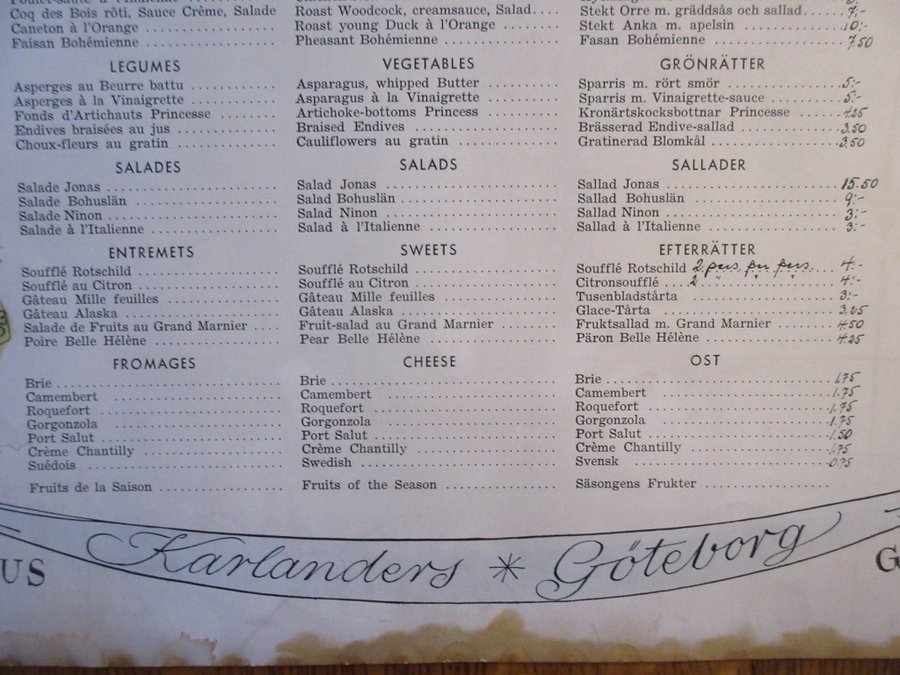 Coq des Bois rôti, Sauce Crème, Salade
Caneton à l'Orange
Faisan Bohémienne
LEGUMES
Asperges au Beurre battu
Asperges à la Vinaigrette
Fonds d'Artichauts Princesse
Endives braisées au jus
Choux-fleurs au gratin
SALADES
Salade Jonas
Salade Bohuslän
Salade Ninon
Salade à l'Italienne
ENTREMETS
Soufflé Rotschild
Soufflé au Citron
Gâteau Mille feuilles
Gâteau Alaska
Salade de Fruits au Grand Marnier
Poire Belle Hélène
FROMAGES
Brie
Camembert
Roquefort
Gorgonzola
Port Salut
Crème Chantilly
Suédois
Fruits de la Saison
Roast Woodcock, creamsauce, Salad
Roast young Duck à l'Orange
Pheasant Bohémienne
VEGETABLES
Asparagus, whipped Butter
Asparagus à la Vinaigrette
Artichoke-bottoms Princess
Braised Endives
Cauliflowers au gratin
SALADS
Salad Jonas
Salad Bohuslän
Salad Ninon
Salad à l'Italienne
SWEETS
Soufflé Rotschild
Soufflé au Citron
Gâteau Mille feuilles
Gâteau Alaska
Fruit-salad au Grand Marnier
Pear Belle Hélène
CHEESE
Brie
Camembert
Roquefort
Gorgonzola
Port Salut
Crème Chantilly
Swedish
Fruits of the Season
Stekt Orre m. gräddsås och sallad 7:-
Stekt Anka m. apelsin 10:-
Fasan Bohémienne 7.50
GRÖNRÄTTER
Sparris m. rört smör 5:-
Sparris m. Vinaigrette-sauce 5:-
Kronärtskocksbottnar Princesse 4.25
Brässerad Endive-sallad 3.50
Gratinerad Blomkål 3.50
SALLADER
Sallad Jonas 15.50
Sallad Bohuslän 9:-
Sallad Ninon 3:-
Sallad à l'Italienne 3:-
EFTERRÄTTER
Soufflé Rotschild 2 pers. per pers. 4:-
Citronsoufflé 2 " " " 4:-
Tusenbladstårta 3:-
Glace-Tårta 3.25
Fruktsallad m. Grand Marnier 4.50
Päron Belle Hélène 4.25
OST
Brie 1.75
Camembert 1.75
Roquefort 1.75
Gorgonzola 1.75
Port Salut 1.50
Crème Chantilly 1.75
Svensk 0.75
Säsongens Frukter
US
Karlanders * Göteborg
G